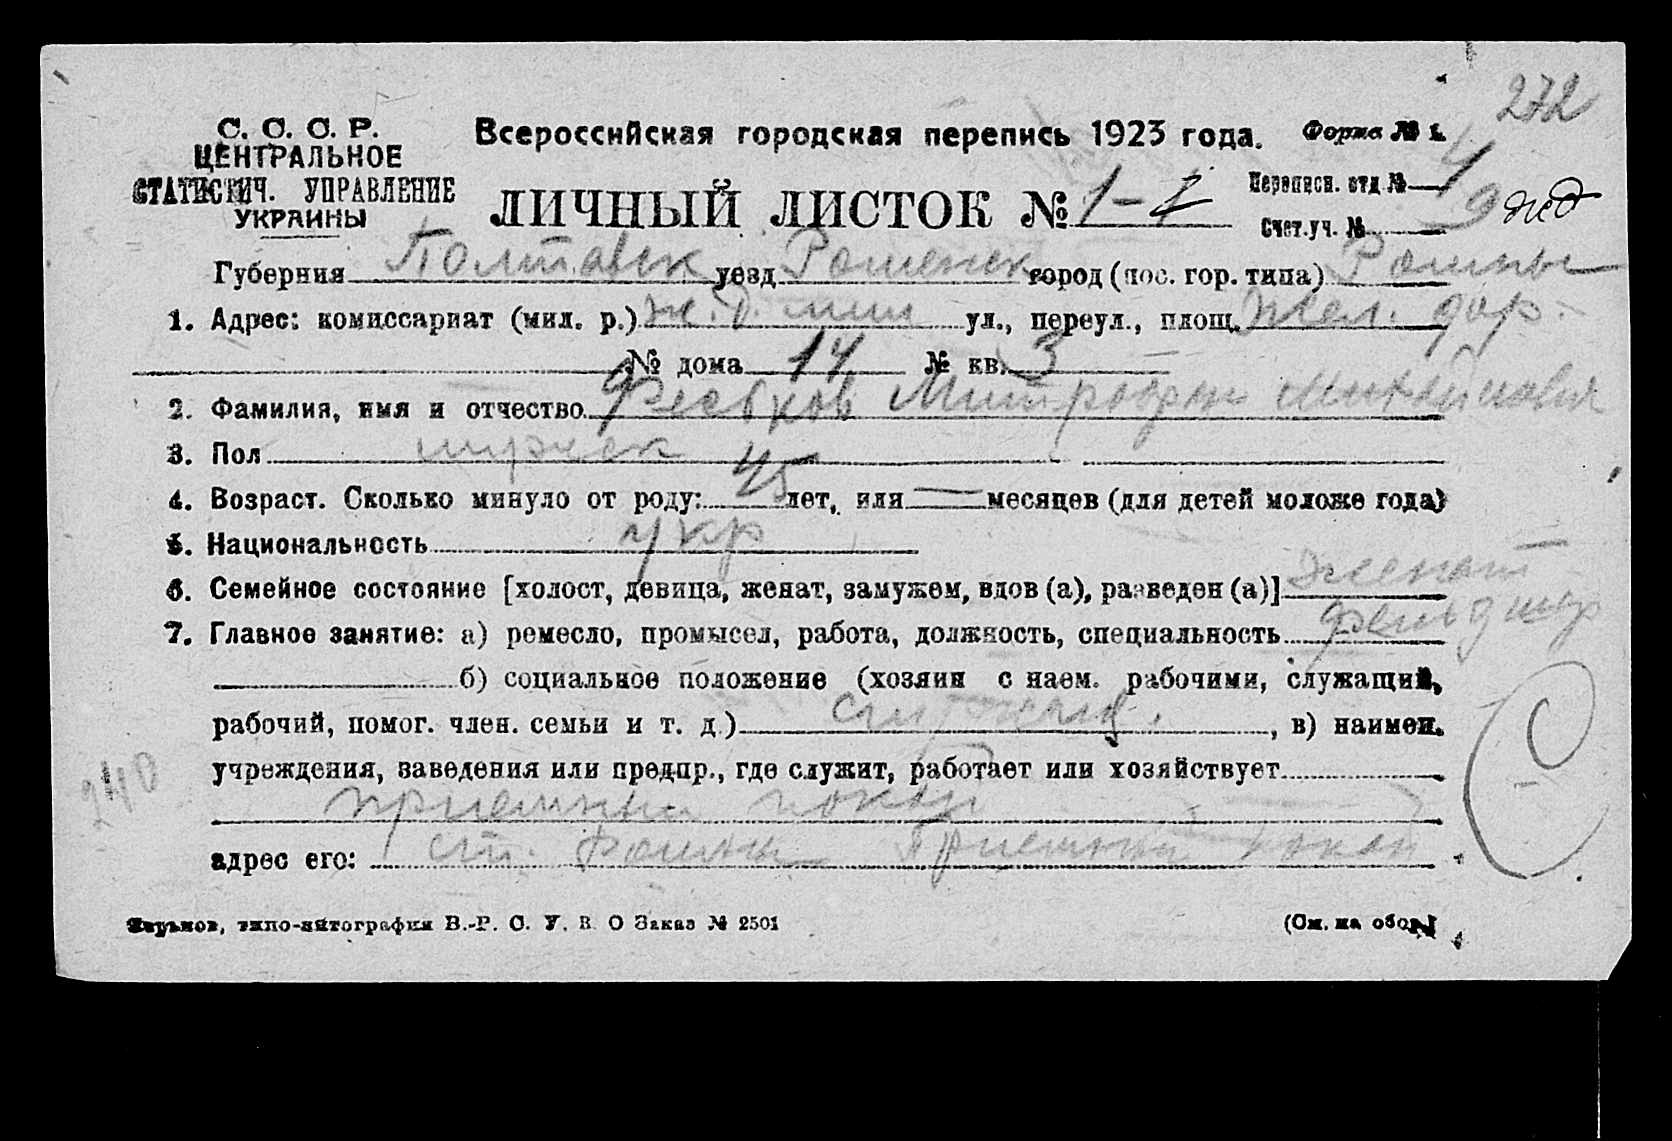 272
С. С. С. Р.
ЦЕНТРАЛЬНОЕ
СТАТИСТИЧ. УПРАВЛЕНИЕ
УКРАИНЫ
Всероссийская городская перепись 1923 года. Форма № 1.
ЛИЧНЫЙ ЛИСТОК № 1-1
Переписн. отд. № 4
Счет. уч. № 9 жд
Губерния Полтавск уезд Роменск город (пос. гор. типа) Ромны
1. Адрес: комиссариат (мил. р.) ж.д. мил ул., переул., площ. Жел. дор.
№ дома 14 № кв. 3
2. Фамилия, имя и отчество Митрофан Михайлович
3. Пол мужск
4. Возраст. Сколько минуло от роду: 45 лет, или — месяцев (для детей моложе года)
5. Национальность укр
6. Семейное состояние [холост, девица, женат, замужем, вдов (а), разведен (а)] женат
7. Главное занятие: а) ремесло, промысел, работа, должность, специальность фельдшер
б) социальное положение (хозяин с наем. рабочими, служащий,
рабочий, помог. член. семьи и т. д.) служащ., в) наимен.
учреждения, заведения или предпр., где служит, работает или хозяйствует
приемный покой
240
адрес его: ст. Ромны Приемный покой
Харьков, типо-литография В.-Р. С. У. В. О Заказ № 2501
(См. на обор.)